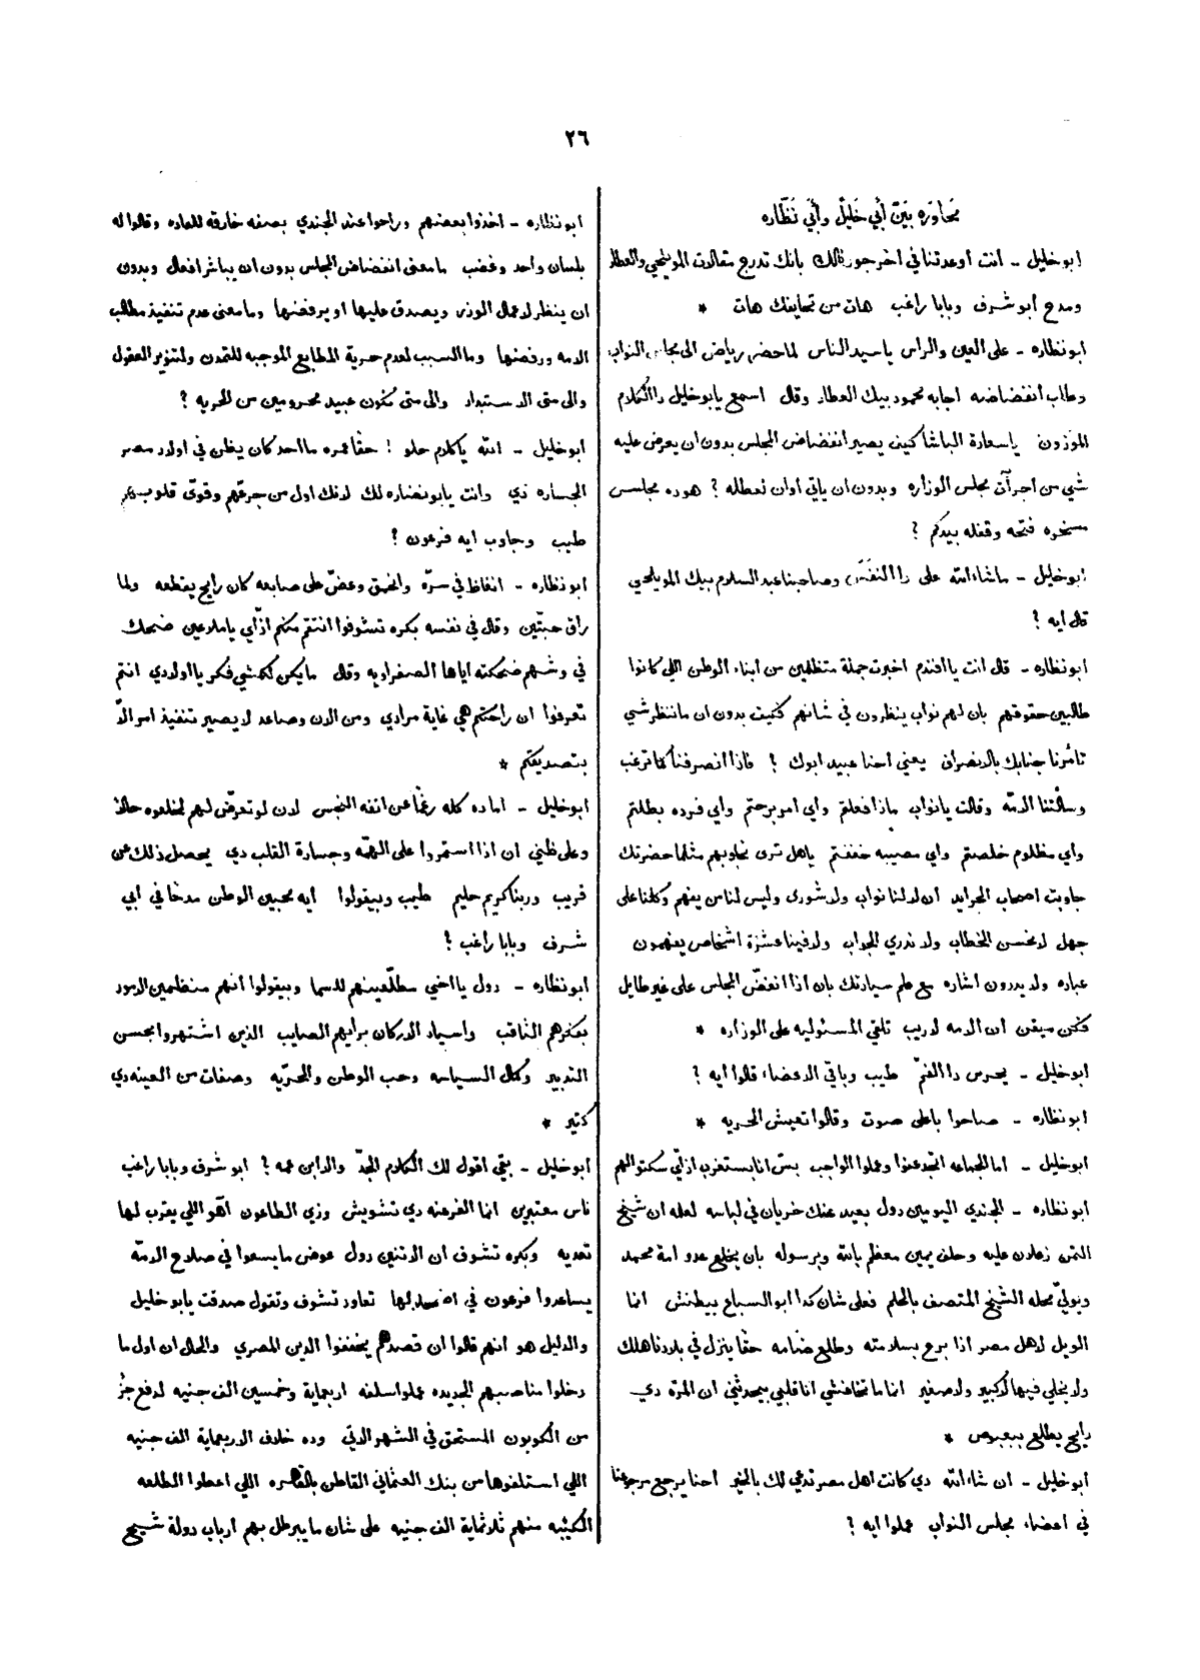 ٢٦
محاوره بين أبي خليل وأبي نظاره
ابو خليل ـ انت أوعدتنا في اخر جورنالك بانك تدرج مقالات المويلحي والعطار
ومدح أبو شرف وبابا راغب هات من تحايفك هات *
ابو نظاره ـ على العين والراس يا سيد الناس لما حضر رياض الى مجلس النواب
وطلب أنفضاضه اجابه محمود بيك العطار وقال اسمع يابو خليل دا الكلام
الموزون ياسعادة الباشا كيف يصير انفضاض المجلس بدون ان يعرض عليه
شي من اجرآت مجلس الوزاره وبدون ان ياتي أوان تعطله ؟ هوده مجلس
مسخره فتحه وقفله بيدكم ؟
ابو خليل ـ ماشاء الله على دا النفَس وصاحبنا عبد السلام بيك المويلحي
قال ايه ؟
ابو نظاره ـ قال انت يا افندم اخبرت جملة متظلمين من ابناء الوطن اللي كانوا
طالبين حقوقهم بان لهم نواب ينظرون في شانهم فكيف بدون ان ما ننظر شي
تأمرنا جنابك بالانصراف يعني احنا عبيد ابوك ؟ فاذا انصرفنا كما ترغب
وسألتنا الامّه وقالت يانواب ماذا فعلتم واي امر برحتم واي فرده بطلتم
واي مظلوم خلصتم واي مصيبه خففتم ياهل ترى نجاوبهم مثلما حضرتك
جاوبت اصحاب الجرايد أن لا لنا نواب ولا شورى وليس لنا من يفهم وكلنا على
جهل لا نحسن الخطاب ولا ندري الجواب ولا فينا عشرة اشخاص يفهمون
عباره ولا يدرون اشاره مع علم سيادتك بان اذا انفضّ المجلس على غير طايل
فكن ميقن أن الامه لا ريب تلقي المسئوليه على الوزاره *
ابو خليل ـ يحرس دا الفمّ طيب وباقي الاعضاء قالوا ايه ؟
ابو نظاره ـ صاحوا باعلى صوت وقالوا تعيش الحريه *
ابو خليل ـ اما الجماعه اتجدعنوا وعملوا الواجب بسّ انا بستغرب ازاي سكتوا لهم
ابو نظاره ـ الجندي اليومين دول بعيد عنك خريان في لباسه لعله ان شيخ
التمن زعلان عليه وحلف يمين معظم بالله وبرسوله بان يخلع عدو امة محمد
ويولّي محله الشيخ المتصف بالحلم فعلى شان كدا ابو السباع بيطنش انما
الويل لاهل مصر اذا برع بسلامته وطلع ضمامه حقا ينزل في بلادنا هلاك
ولا يخلي فيها لا كبير ولا صغير انما ما تخافشي انا قلبي بيحدثني ان المرة دي
رايح يطلع ببعبوص *
ابو خليل ـ ان شاء الله دي كانت اهل مصر تدعي لك بالخير احنا يرجع مرجوعنا
في اعضاء مجلس النواب عملوا ايه ؟
ابو نظاره ـ اخذوا بعضهم وراحوا عند الجندي بصفه خارقه للعاده وقالوا له
بلسان واحد وغضب ما معنى انفضاض المجلس بدون ان يباشر افعال وبدون
ان ينظر لاعمال الوزر ويصدق عليها او يرفضها وما معنى عدم تنفيذ مطلب
الامه ورفضها وما السبب لعدم حرية المطابع الموجبه للتمدن ولتنوير العقول
والى متى الاستبداد والى متى نكون عبيد محرومين من الحريه ؟
ابو خليل ـ الله يا كلام حلو ! حقا عمره ما احد كان يظن في اولاد مصر
الجساره دي وانت يابو نضاره لك لانك اول من جرعهم وقوّى قلوبهم
طيب وجاوب ايه فرعون ؟
ابو نظاره ـ انغاظ في سرّه وانحمق وعضّ على صابعه كان رايح يقطعه ولما
راق حبتّين وقال في نفسه بكره تشوفوا انتقم منكم ازّاي يا ملاعين ضحك
في وشهم ضحكته اياها الصفراويه وقال ما يكن لكمشي فكر يا اولادي انتم
تعرفوا ان راحتكم هي غاية مرادي ومن الان وصاعد لا يصير تنفيذ امر الاّ
بتصديقكم *
ابو خليل ـ اما ده كله رغمًا عن انفه النجس لان لو تعرّض لهم لخلعوه حالا
وعلى ظني ان اذا استمروا على الهمّه وجسارة القلب دي يحصل ذلك عن
قريب وربنا كريم حليم طيب وبيقولوا ايه محبين الوطن مدخا في ابي
شرف وبابا راغب ؟
ابو نظاره ـ دول يا اخي مطلّعينهم للسما وبيقولوا أنهم منظمين الامور
بفكرهم الثاقب واسياد الاركان برايهم الصايب الذين اشتهروا بحسن
التدبير وكمال السياسه وحب الوطن والحرّيه وصفات من العينه دي
كتير *
ابو خليل ـ بقي اقول لك الكلام الجدّ والا ابن عمه ؟ ابو شرف وبابا راغب
ناس معتبرين انما الفرعنه دي تشويش وزي الطاعون آهو اللي يقرب لها
تعديه وبكره تشوف ان الاتنين دول عوض ما يسعوا في صلاح الامّه
يساعدوا فرعون في اضمحلالها تعاود تشوف وتقول صدقت يابو خليل
والدليل هو انهم قالوا ان قصدهم يخففوا الدين المصري والحال ان اول ما
دخلوا مناصبهم الجديده عملوا سلفه اربعماية وخمسين الف جنيه لدفع جزُ
من الكوبون المستحق في الشهر الاتي وده خلاف الاربعماية الف جنيه
اللي استلفوها من بنك العثماني القاطن بالقاهره اللي اعطوا الطلعه
الكتيبه منهم ثلاثماية الف جنيه على شان ما يبرطل بهم ارباب دولة شيخ